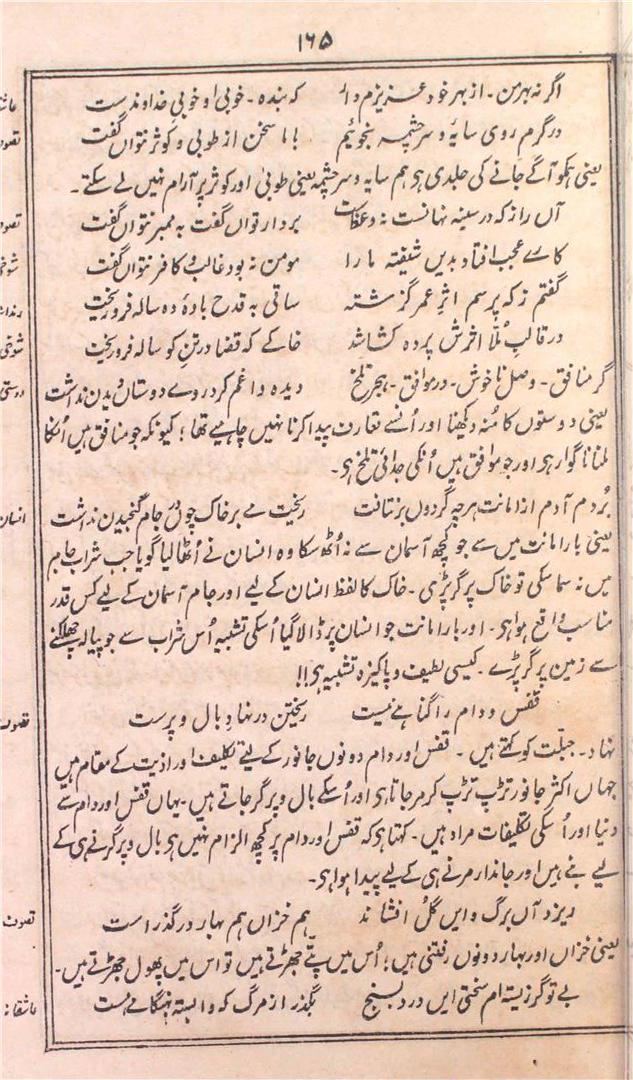 ۱۶۵
اگر نہ بہر من - از بہر خود عزیزم دار کہ بندہ - خوبیِ او خوبیِ خداوند ست
عاشق
در گرم روی سایہ و سرچشمہ نجوئیم با ما سخن از طوبی و کوثر نتواں گفت
تصوف
یعنی ہمکو آگے جانے کی جلدی ہے ہم سایہ و سرچشمہ یعنی طوبیٰ اور کوثر پر آرام نہیں لے سکتے۔
آں راز کہ در سینہ نہانست نہ وعظ ست بردار تواں گفت بہ ممبر نتواں گفت
تصوف
کارے عجب افتاد بدیں شیفتہ ما را مومن نہ بود غالبؔ و کافر نتواں گفت
شوخی
گفتم ز کہ پرسم اثرِ عمرِ گزشتہ ساقی بہ قدح بادۂ دہ سالہ فرو ریخت
رندانہ
در قالبِ مُلّا اثرش پردہ کشا شد خاکے کہ قضا در تنِ گو سالہ فرو ریخت
شوخی
گر منافق - وصل ناخوش - در موافق - ہجر تلخ دیدہ داغم کرد روے دوستاں دیدن نداشت
دوستی
یعنی دوستوں کا مُنہ دیکھنا اور اُنسے تعارف پیدا کرنا نہیں چاہیے تھا؛ کیونکہ جو منافق ہیں اُنکا
ملنا ناگوار ہی اور جو موافق ہیں اُنکی جدائی تلخ ہی۔
بُردم آدم از امانت ہرچہ گردوں بر نتافت ریخت مے بر خاک چوں در جام گنجیدن نداشت
انسان
یعنی بارِ امانت میں سے جو کچھ آسمان سے نہ اُٹھ سکا وہ انسان نے اُٹھا لیا گویا جب شراب جام
میں نہ سما سکی تو خاک پر گر پڑی۔ خاک کا لفظ انسان کے لیے اور جام آسمان کے لیے کس قدر
مناسب واقع ہوا ہی۔ اور بارِ امانت جو انسان پر ڈالا گیا اُسکی تشبیہ اُس شراب سے جو پیالہ چھلکنے
سے زمین پر گر پڑے۔ کیسی لطیف و پاکیزہ تشبیہ ہی!!
قفس و دام را گناہے نیست ریختن در نہادِ بال و پر ست
تصوف
نہاد۔ جبلت کو کہتے ہیں۔ قفس اور دام دونوں جانور کے لیے تکلیف اور اذیت کے مقام ہیں
جہاں اکثر جانور تڑپ تڑپ کر مر جاتا ہی اور اُسکے بال و پر گر جاتے ہیں۔ یہاں قفس اور دام سے
دنیا اور اُسکی تکلیفات مراد ہیں۔ کہتا ہی کہ قفس اور دام پر کچھ الزام نہیں ہی بال و پر گرنے ہی کے
لیے بنے ہیں اور جاندار مرنے ہی کے لیے پیدا ہوا ہی۔
ریزد آں برگ و ایں گُل افشاند ہم خزاں ہم بہار در گذر است
تصوف
یعنی خزاں اور بہار دونوں رفتنی ہیں؛ اُس میں پتے جھڑتے ہیں تو اس میں پھول جھڑتے ہیں۔
بے تو گر زیستہ ام سختیِ ایں درد بسنج بگذر از مرگ کہ وابستہ ہنگامے ہست
عاشقانہ